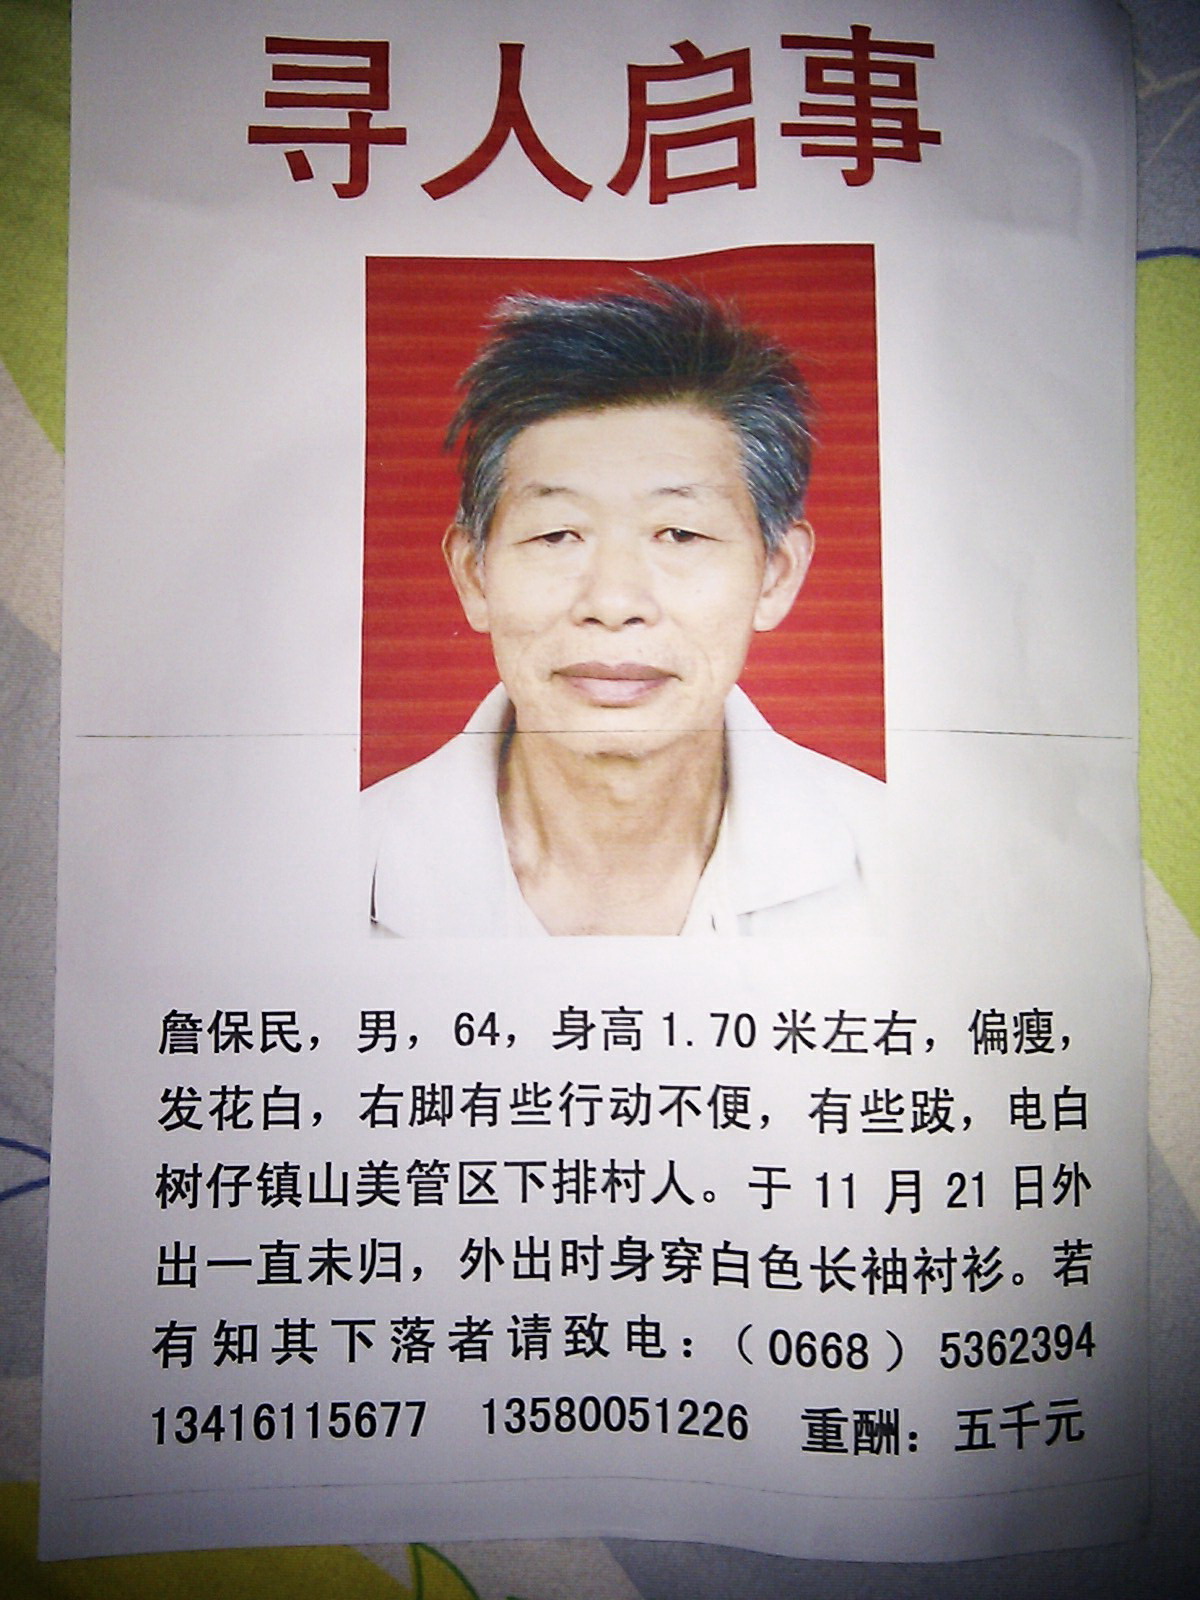 寻人启事
詹保民，男，64，身高1.70米左右，偏瘦，
发花白，右脚有些行动不便，有些跋，电白
树仔镇山美管区下排村人。于11月21日外
出一直未归，外出时身穿白色长袖衬衫。若
有知其下落者请致电：（0668）5362394
13416115677 13580051226 重酬：五千元